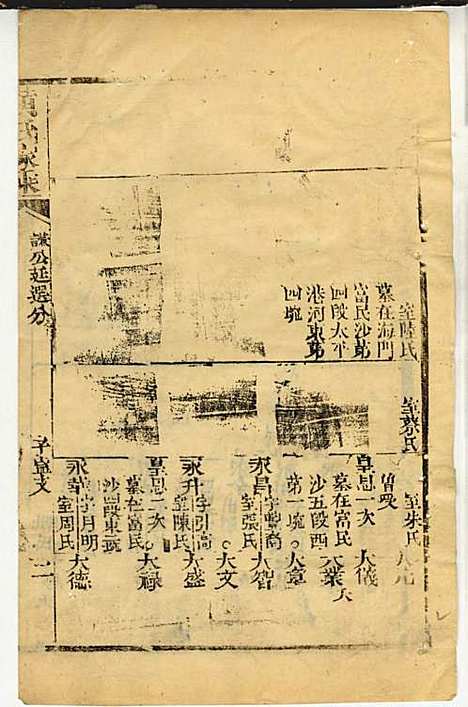 室陸氏
墓在海門
富民沙第
四段太平
港河東第
四垸
室蔡氏
室朱氏
曾受
皇恩一次 大儀
墓在富民
沙五段西 大業
第一垸 大章
永昌 字豐裔
室張氏 大智
大文
永升 字引高
室陳氏 大盛
皇恩一次 大祿
墓在富民
沙四段東二垸
永華 字月明
室周氏 大德
議公廷選分